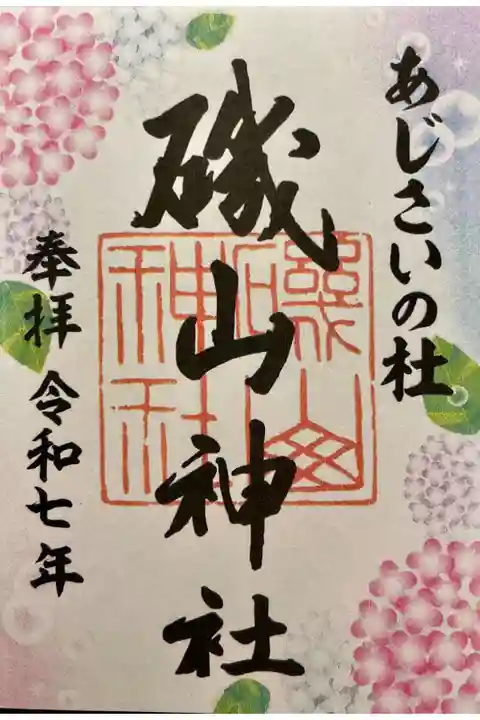 あじさいの杜
磯山神社
奉拝 令和七年
磯山
神社